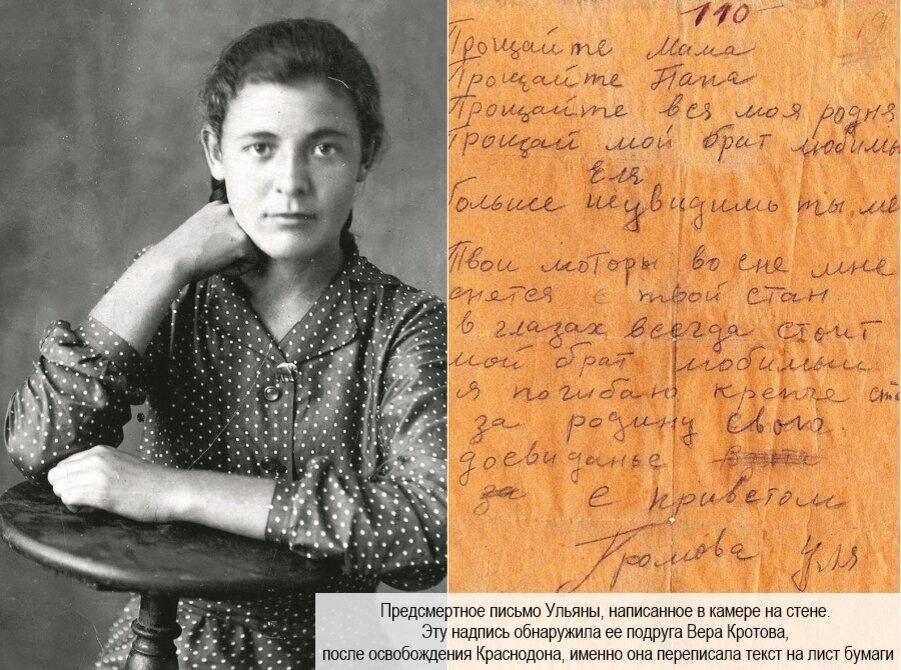 110
19
Прощайте Мама
Прощайте Папа
Прощайте вся моя родня
Прощай мой брат любимы
Еля
больше неувидишь ты ме
Твои моторы во сне мне
снется твой стан
в глазах всегда стоит
мой брат любимый
я погибаю крепче сто
за родину свою.
досвиданье
за с приветом
Громова Уля
Предсмертное письмо Ульяны, написанное в камере на стене.
Эту надпись обнаружила ее подруга Вера Кротова,
после освобождения Краснодона, именно она переписала текст на лист бумаги